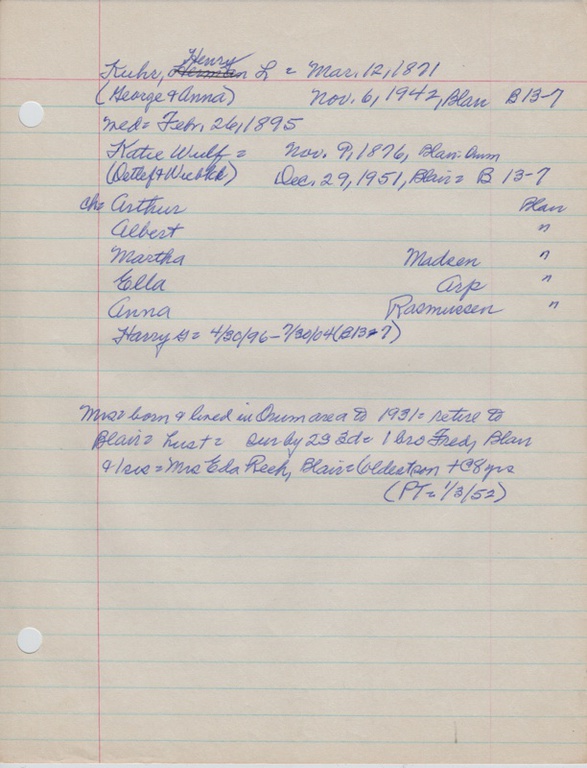 Henry
Kuhr, Herman L = Mar. 12, 1871
(George & Anna) Nov. 6, 1942, Blair B13-7
med = Febr. 26, 1895
Katie Wulf = Nov. 9, 1876, Blair-Orum
(Detlef & Wiebke) Dec. 29, 1951, Blair = B 13-7
ch = Arthur Blair
Albert "
Martha Madsen "
Ella Arp "
Anna Rasmussen "
Harry G = 4/30/96 - 7/30/04 (B13-7)
Mrs = born & lived in Orum area to 1931 = retire to
Blair = Lust = sur by 2S 3d = 1 bro Fred, Blair
& 1 sis = Mrs Eda Reeh, Blair =
(PT = 1/3/52)